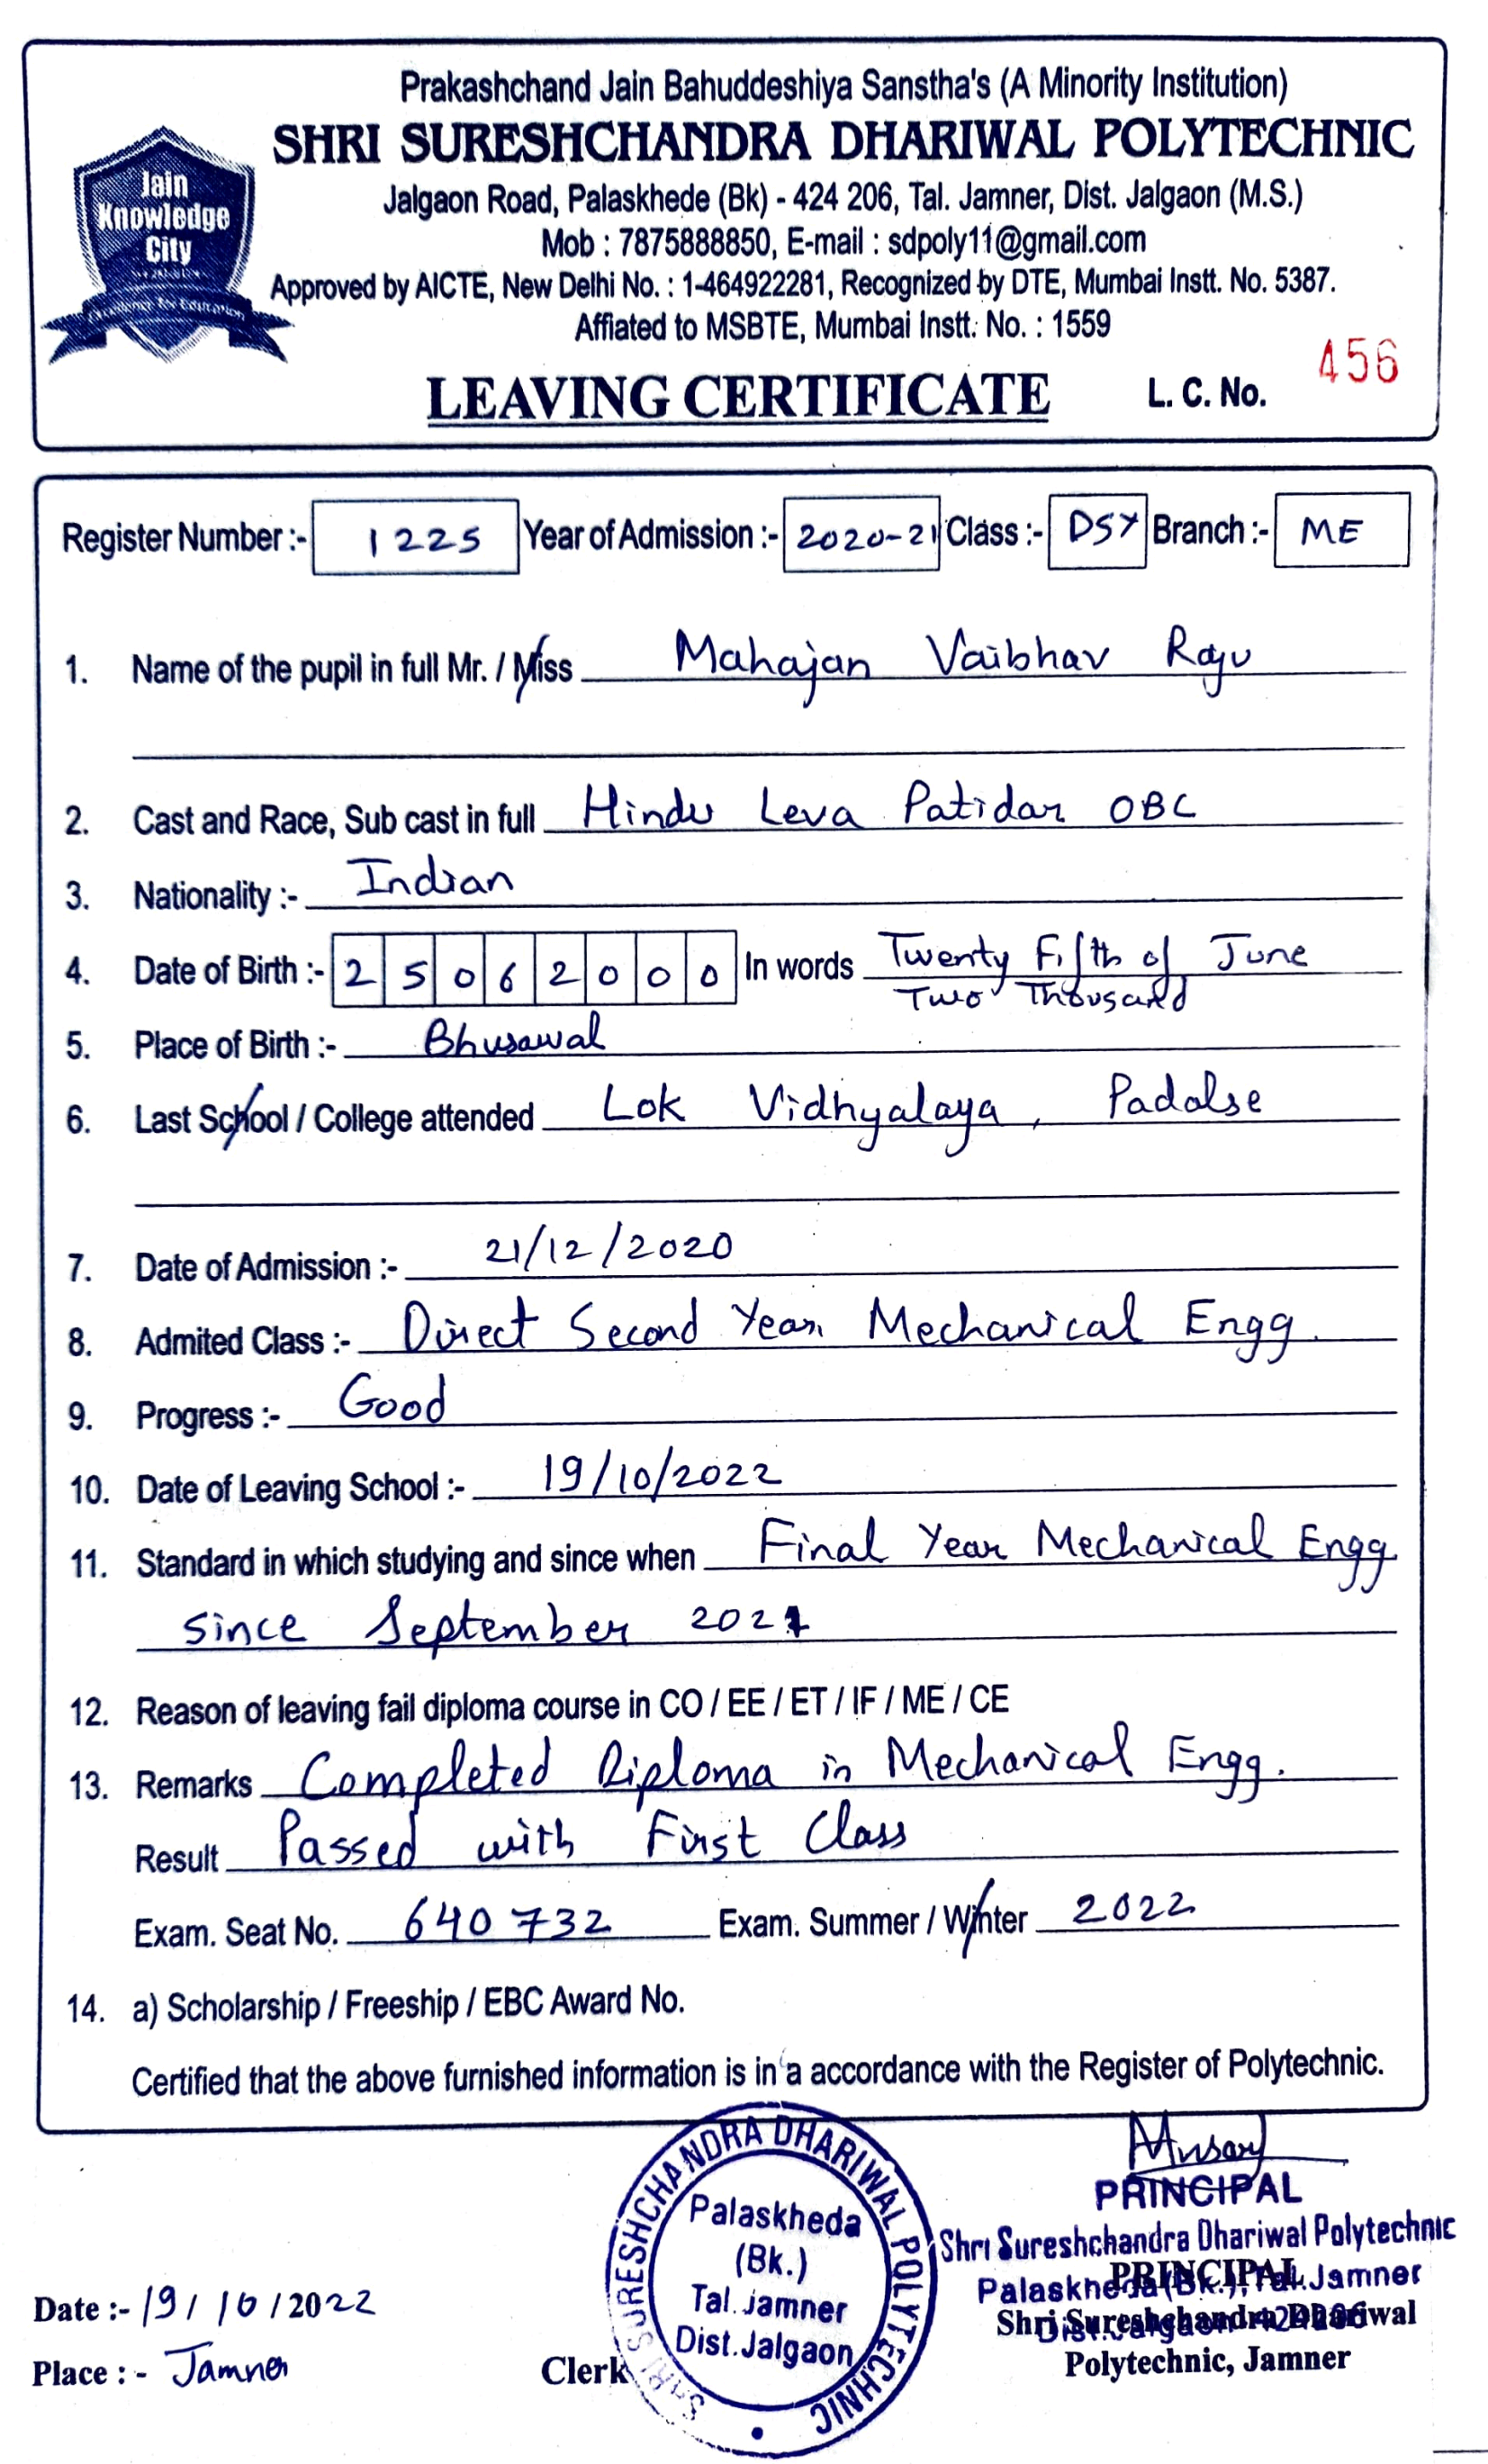 Prakashchand Jain Bahuddeshiya Sanstha's (A Minority Institution)
SHRI SURESHCHANDRA DHARIWAL POLYTECHNIC
Jain Knowledge City
Jalgaon Road, Palaskhede (Bk) - 424 206, Tal. Jamner, Dist. Jalgaon (M.S.)
Mob : 7875888850, E-mail : sdpoly11@gmail.com
Approved by AICTE, New Delhi No. : 1-464922281, Recognized by DTE, Mumbai Instt. No. 5387.
Affiated to MSBTE, Mumbai Instt. No. : 1559
LEAVING CERTIFICATE L. C. No. 456
Register Number :- 1225 Year of Admission :- 2020-21 Class :- DSY Branch :- ME
1. Name of the pupil in full Mr. / Miss Mahajan Vaibhav Raju
2. Cast and Race, Sub cast in full Hindu Leva Patidar OBC
3. Nationality :- Indian
4. Date of Birth :- 2 5 0 6 2 0 0 0 In words Twenty Fifth of June
Two Thousand
5. Place of Birth :- Bhusawal
6. Last School / College attended Lok Vidhyalaya, Padalse
7. Date of Admission :- 21/12/2020
8. Admited Class :- Direct Second Year Mechanical Engg.
9. Progress :- Good
10. Date of Leaving School :- 19/10/2022
11. Standard in which studying and since when Final Year Mechanical Engg.
since September 2021
12. Reason of leaving fail diploma course in CO / EE / ET / IF / ME / CE
13. Remarks Completed Diploma in Mechanical Engg.
Result Passed with First Class
Exam. Seat No. 640732 Exam. Summer / Winter 2022
14. a) Scholarship / Freeship / EBC Award No.
Certified that the above furnished information is in a accordance with the Register of Polytechnic.
SHRI SURESHCHANDRA DHARIWAL POLYTECHNIC
Palaskheda
(Bk.)
Tal. Jamner
Dist. Jalgaon
PRINCIPAL
Shri Sureshchandra Dhariwal Polytechnic
Palaskheda (Bk.), Tal. Jamner
Dist. Jalgaon 424206
PRINCIPAL
Shri Sureshchandra Dhariwal
Polytechnic, Jamner
Date :- 19 / 10 / 2022
Place : - Jamner
Clerk